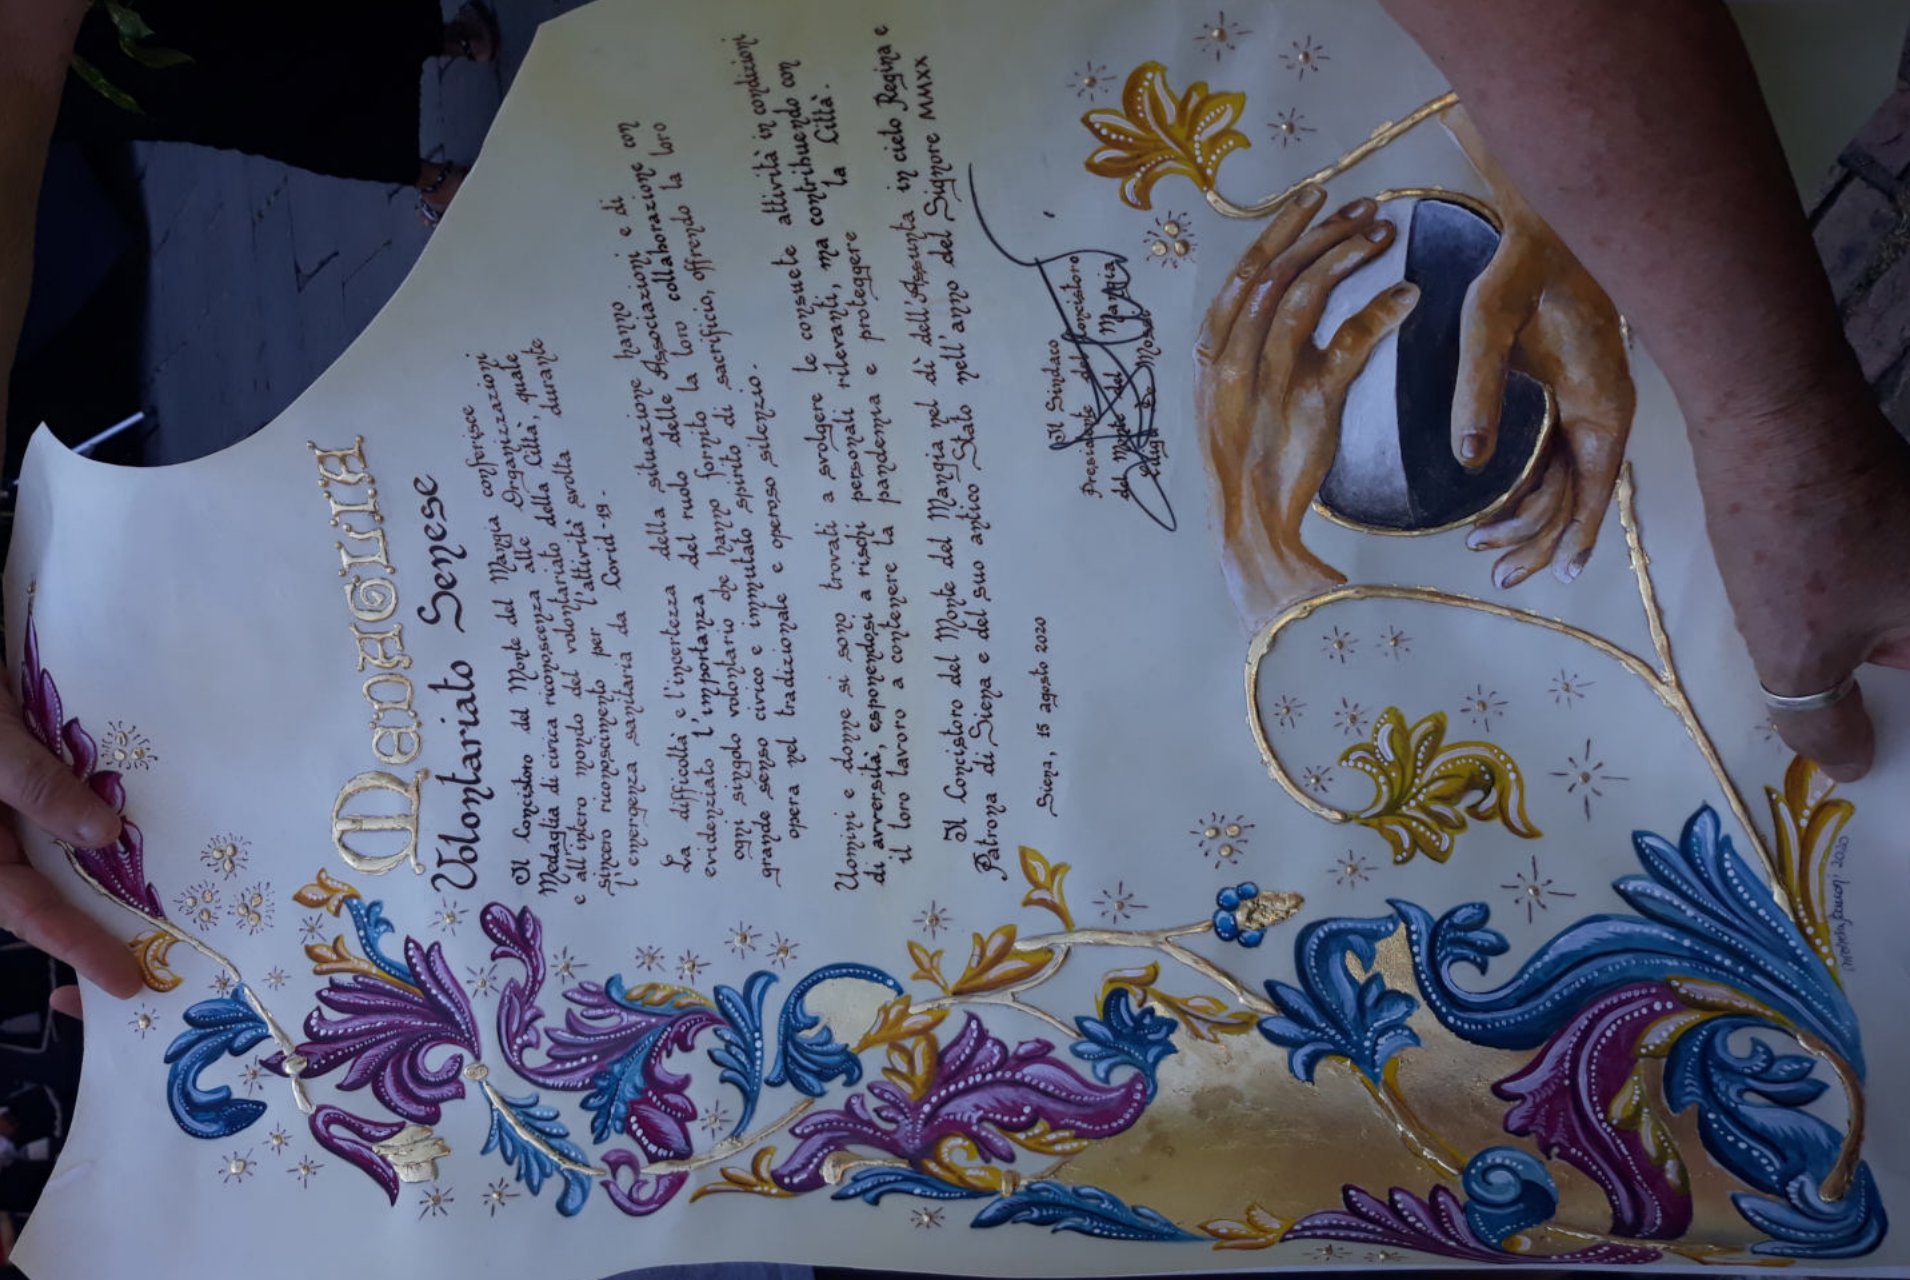 MEDAGLIA
Volontariato Senese
Il Concistoro del Monte del Mangia conferisce
Medaglia di civica riconoscenza alle Organizzazioni
e all'intero mondo del volontariato della Città, quale
sincero riconoscimento per l'attività svolta durante
l'emergenza sanitaria da Covid-19.
La difficoltà e l'incertezza della situazione hanno
evidenziato l'importanza del ruolo delle Associazioni e di
ogni singolo volontario che hanno fornito la loro collaborazione con
grande senso civico e immutato spirito di sacrificio, offrendo la loro
opera nel tradizionale e operoso silenzio.
Uomini e donne si sono trovati a svolgere le consuete attività in condizioni
di avversità, esponendosi a rischi personali rilevanti, ma contribuendo con
il loro lavoro a contenere la pandemia e proteggere la Città.
Il Concistoro del Monte del Mangia nel dì dell'Assunta in cielo Regina e
Patrona di Siena e del suo antico Stato nell'anno del Signore MMXX
Siena, 15 agosto 2020
Il Sindaco
Presidente del Concistoro
del Monte del Mangia
Luigi De Mossi
2020